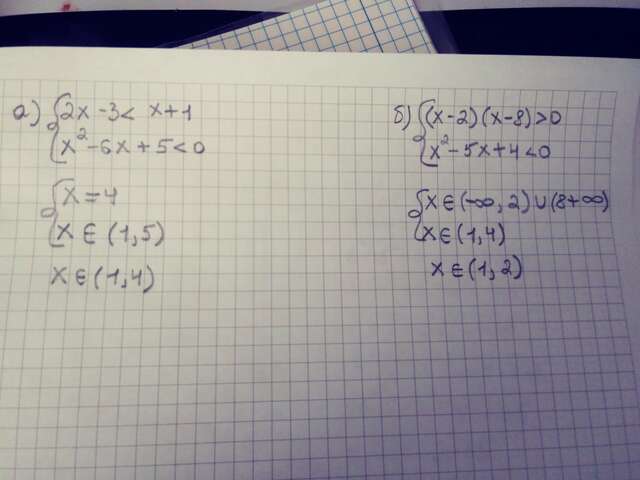 а) {2x-3< x+1
{x²-6x+5<0
{x=4
{x∈(1,5)
x∈(1,4)
б) {(x-2)(x-8)>0
{x²-5x+4<0
{x∈(-∞,2)∪(8+∞)
{x∈(1,4)
x∈(1,2)